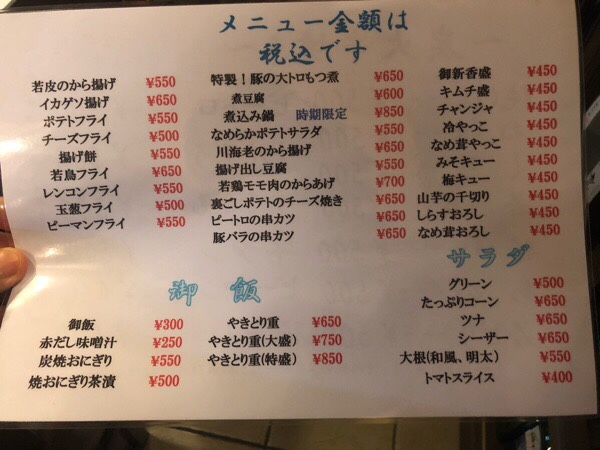 メニュー金額は
税込です
若皮のから揚げ ¥550
イカゲソ揚げ ¥650
ポテトフライ ¥550
チーズフライ ¥500
揚げ餅 ¥550
若鳥フライ ¥650
レンコンフライ ¥550
玉葱フライ ¥500
ピーマンフライ ¥550
特製！豚の大トロもつ煮 ¥650
煮豆腐 ¥600
煮込み鍋 時期限定 ¥850
なめらかポテトサラダ ¥550
川海老のから揚げ ¥650
揚げ出し豆腐 ¥650
若鶏モモ肉のからあげ ¥700
裏ごしポテトのチーズ焼き ¥650
ピートロの串カツ ¥650
豚バラの串カツ ¥650
御新香盛 ¥450
キムチ盛 ¥450
チャンジャ ¥450
冷やっこ ¥450
なめ茸やっこ ¥450
みそキュー ¥450
梅キュー ¥450
山芋の千切り ¥450
しらすおろし ¥450
なめ茸おろし ¥450
御飯
御飯 ¥300
赤だし味噌汁 ¥250
炭焼おにぎり ¥550
焼おにぎり茶漬 ¥500
やきとり重 ¥650
やきとり重(大盛) ¥750
やきとり重(特盛) ¥850
サラダ
グリーン ¥500
たっぷりコーン ¥650
ツナ ¥650
シーザー ¥650
大根(和風、明太) ¥550
トマトスライス ¥400